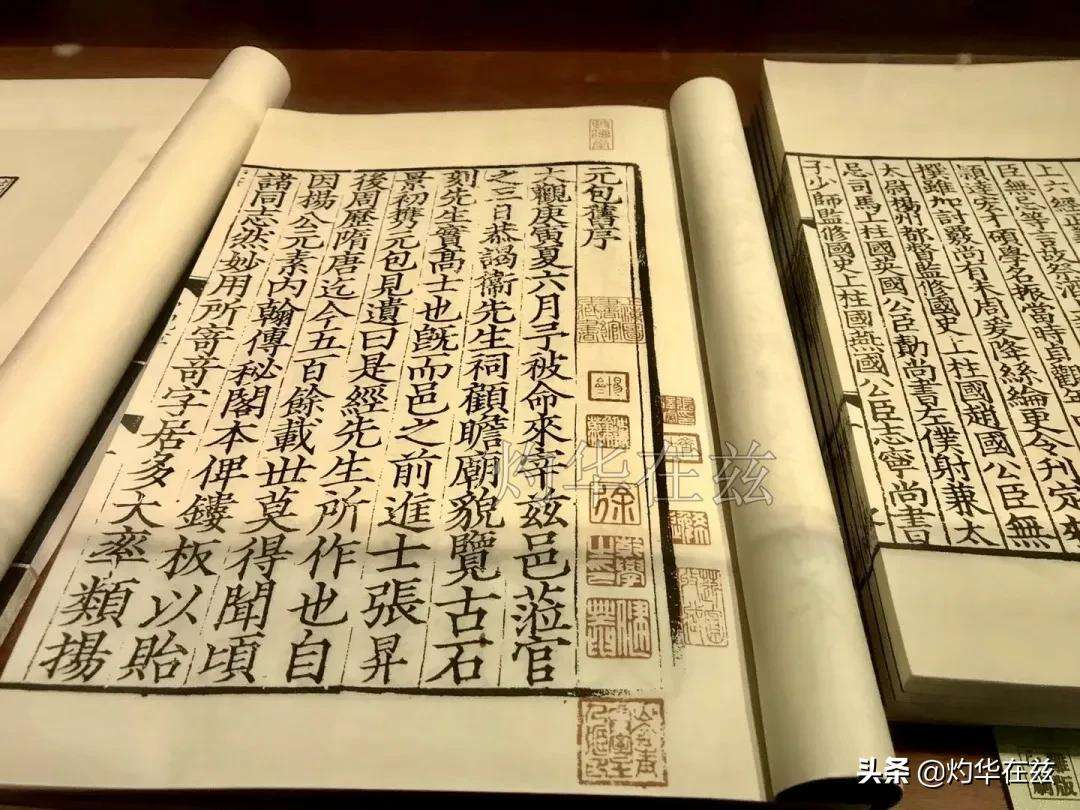 上六經
臣無忌等言故祭酒
頴達宏才碩學名振當時貞觀年
撰雖加討覈尚有未周爰降絲綸更令刊定勑
太尉揚州都督監修國史上柱國趙國公臣無
忌司空上柱國英國公臣勣尚書左僕射兼太
子少師監修國史上柱國燕國公臣志寧尚書右
元包舊序
大觀庚寅夏六月予被命來宰兹邑蒞官
之三日恭謁衞先生祠顧瞻廟貌覽古石
刻先生實髙士也旣而邑之前進士張昇
景初携元包見遺曰是經先生所作也自
後周歷隋唐迄今五百餘載世莫得聞頃
因楊公元素内翰傳秘閣本俾鏤板以貽
諸同志然妙用所寄竒字居多大率類揚
灼华在兹
头条 @灼华在兹